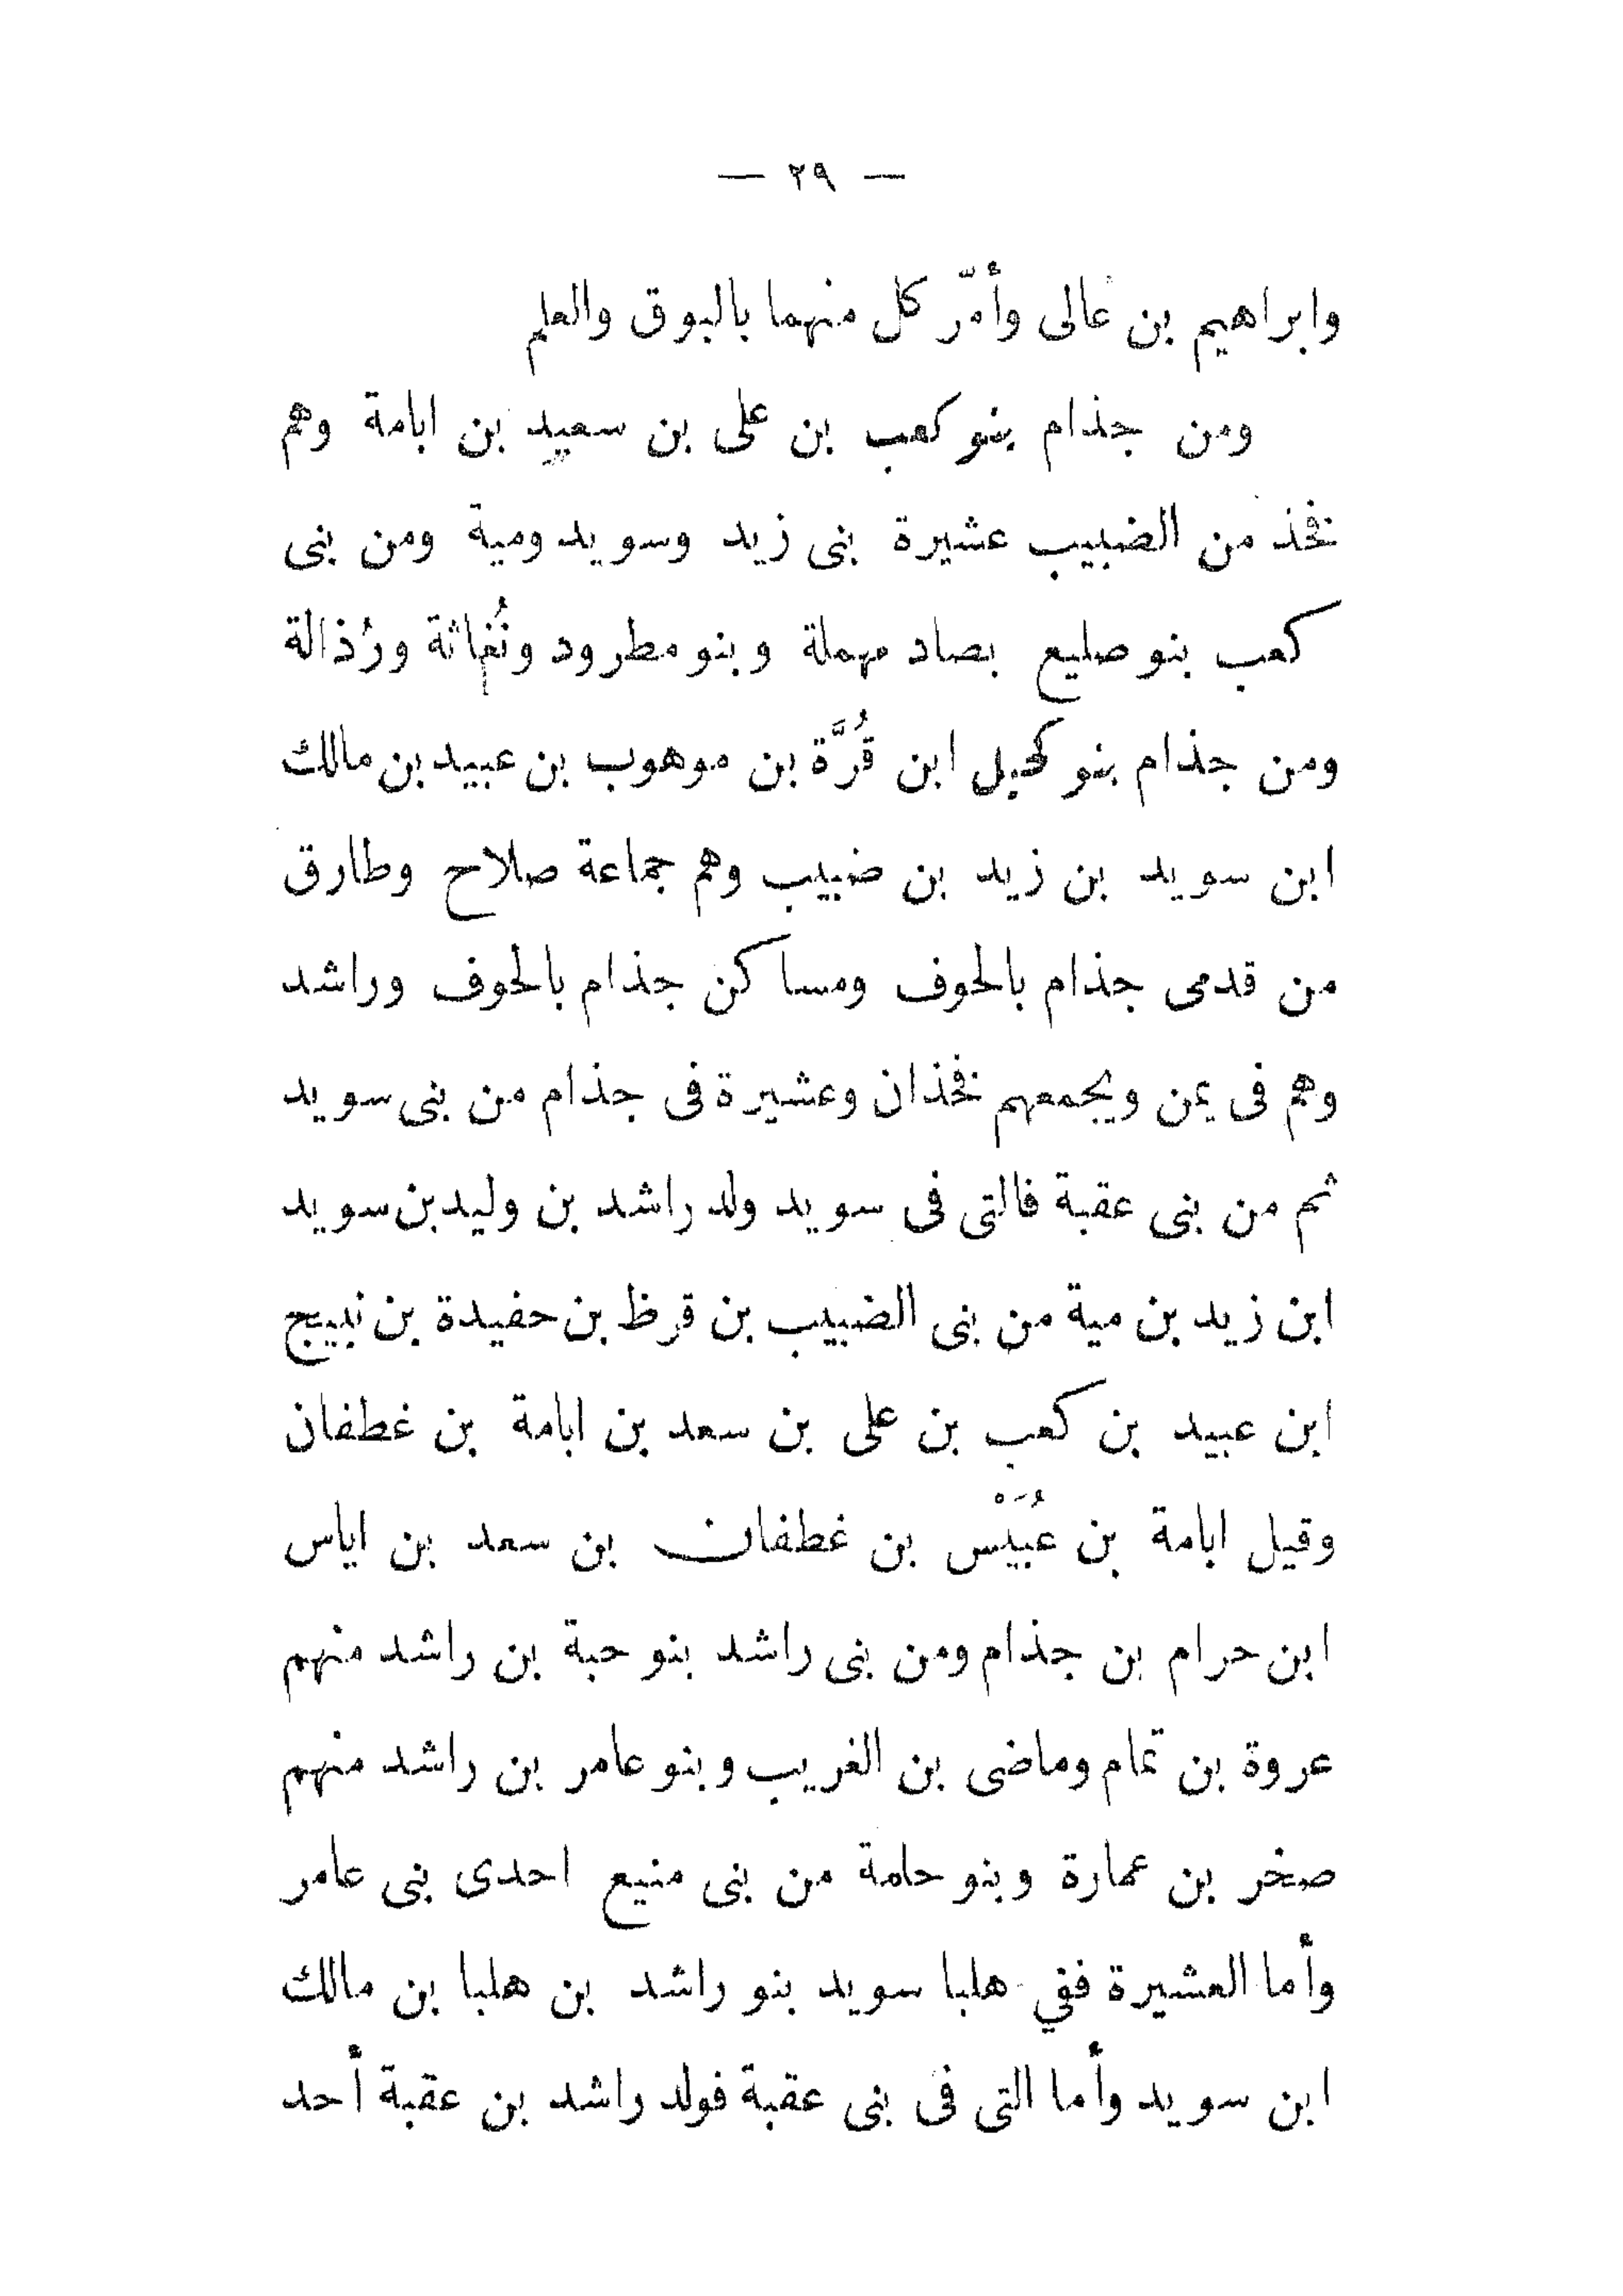 — ٢٩ —
وابراهيم بن عالى وأمّر كل منهما بالبوق والعلم
ومن جذام بنو كعب بن على بن سعيد بن ابامة وهم
نخذ من الضبيب عشيرة بنى زيد وسويد ومية ومن بنى
كعب بنو صليع بصاد مهملة وبنو مطرود ونُفاثة ورُذالة
ومن جذام بنو كحيل ابن قُرَّة بن موهوب بن عبيد بن مالك
ابن سويد بن زيد بن ضبيب وهم جماعة صلاح وطارق
من قدمى جذام بالحوف ومساكن جذام بالحوف وراشد
وهم فى يمن ويجمعهم نخذان وعشيرة فى جذام من بنى سويد
ثم من بنى عقبة فالتى فى سويد ولد راشد بن وليد بن سويد
ابن زيد بن مية من بنى الضبيب بن قرظ بن حفيدة بن نبيج
ابن عبيد بن كعب بن على بن سعد بن ابامة بن غطفان
وقيل ابامة بن عُبَيْس بن غطفان بن سعد بن اياس
ابن حرام بن جذام ومن بنى راشد بنو حبة بن راشد منهم
عروة بن تمام وماضى بن الغريب وبنو عامر بن راشد منهم
صخر بن عمارة وبنو حامة من بنى منيع احدى بنى عامر
وأما العشيرة ففي هلبا سويد بنو راشد بن هلبا بن مالك
ابن سويد وأما التى فى بنى عقبة فولد راشد بن عقبة أحد